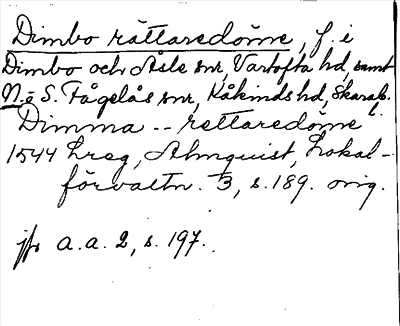 Dimbo rättaredöme, f. i
Dimbo och Åsle snr, Vartofta hd, samt
N. o S. Fågelås snr, Kåkinds hd, Skarab.
Dimma -- rettaredöme
1544 Lreg, Almquist, Lokal-
förvaltn. 3, s. 189. orig.
jfr a.a. 2, s. 197.